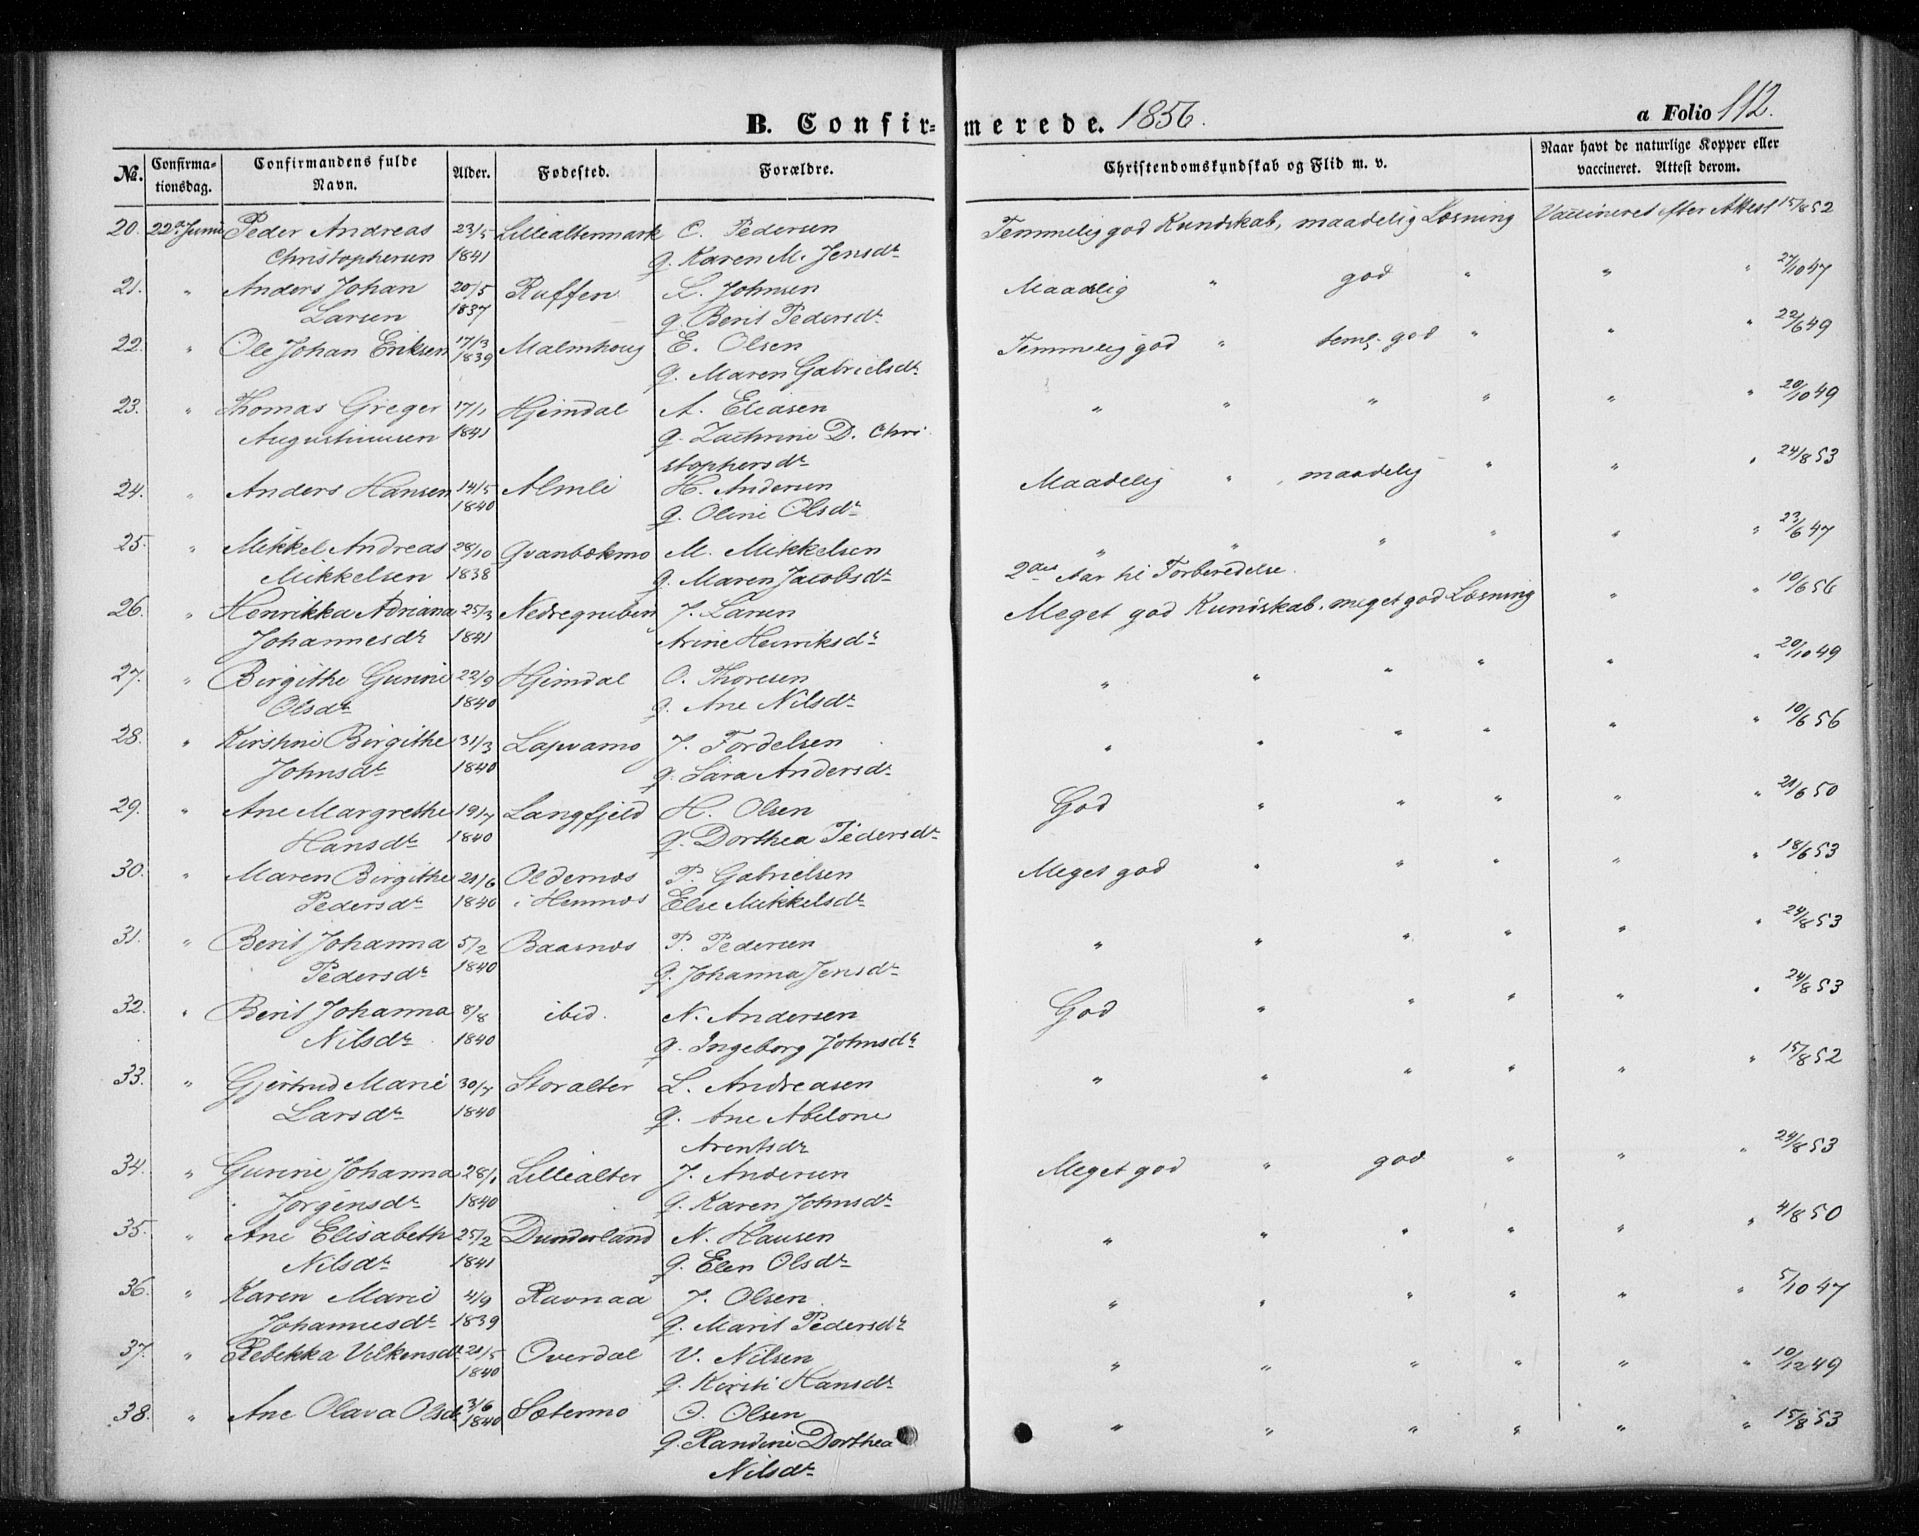 B. Confir- merede. 1856. a Folio 112.
No. Confirma-tionsdag. Confirmandens fulde Navn. Alder. Fødested. Forældre. Christendomskundskab og Flid m. v. Naar havt de naturlige Kopper eller vaccineret. Attest derom.
20. 22de Juni Peder Andreas 23/5 Lillealtermark C. Pedersen Temmelig god Kundskab, maadelig Læsning Vaccineret efter Attest 15/8 52
Christophersen 1841 q. Karen M. Jensdr
21. " Anders Johan 20/5 Ruffen L. Johnsen Maadelig " god " " " 27/10 47
Larsen 1837 q. Berit Pedersdr
22. " Ole Johan Eriksen 17/3 Malmhoug E. Olsen Temmelig god " teml. god " " " 22/6 49
1839 q. Maren Gabrielsdr
23. " Thomas Greger 17/1 Hjemdal A. Eliasen " " " " " " 20/10 49
Augustinussen 1841 q. Zachrine D. Chri
stophersdr
24. " Anders Hansen 14/5 Almli H. Andersen Maadelig " , maadelig " " " 24/8 53
1840 q. Oline Olsdr
25. " Mikkel Andreas 28/10 Qvanbækmo M. Mikkelsen " " " " " " 23/6 47
Mikkelsen 1838 q. Maren Jacobsdr 2det Aar til Forberedelse.
26. " Henrikka Adriana 25/3 Nedregruben J. Larsen Meget god Kundskab, meget god Læsning " " 10/6 56
Johannesdr 1841 Arine Henriksdr
27. " Birgithe Gurine 22/9 Hjemdal O. Thoresen " " " " " " 20/10 49
Olsdr 1840 q. Ane Nilsdr
28. " Kirstine Birgithe 31/3 Lapvamo J. Fordelsen " " " " " " 10/6 56
Johnsdr 1840 q. Sara Andersdr
29. " Ane Margrethe 19/7 Langfjeld H. Olsen God " " " " " 21/6 50
Hansdr 1840 q. Dorthea Pedersdr
30. " Maren Birgithe 21/6 Oldernæs P. Gabrielsen Meget god " " " " " 18/6 53
Pedersdr 1840 i Hemnæs Else Mikkelsdr
31. " Berit Johanna 5/2 Baasnæs P. Pedersen " " " " " " 24/8 53
Pedersdr 1840 q. Johanna Jensdr
32. " Berit Johanna 8/8 ibid. N. Andersen God " " " " " 24/8 53
Nilsdr 1840 q. Ingeborg Johnsdr
33. " Gjertrud Marie 30/7 Storalter L. Andreasen " " " " " " 15/8 52
Larsdr 1840 q. Ane Abelone
Arentsdr
34. " Gurine Johanna 28/1 Lillealter J. Andersen Meget god " god " " " 24/8 53
Jørgensdr 1840 q. Karen Johnsdr
35. " Ane Elisabeth 25/2 Dunderland N. Hansen " " " " " " 4/8 50
Nilsdr 1841 q. Elen Olsdr
36. " Karen Marie 4/9 Ravnaa J. Olsen " " " " " " 5/10 47
Johannesdr 1839 q. Marit Pedersdr
37. " Rebekka Vilkensdr 21/5 Overdal V. Nilsen " " " " " " 10/12 49
1840 q. Kirsti Hansdr
38. " Ane Olava Olsdr 3/6 Sætermo O. Olsen " " " " " " 15/8 53
1840 q. Randine Dorthea
Nilsdr